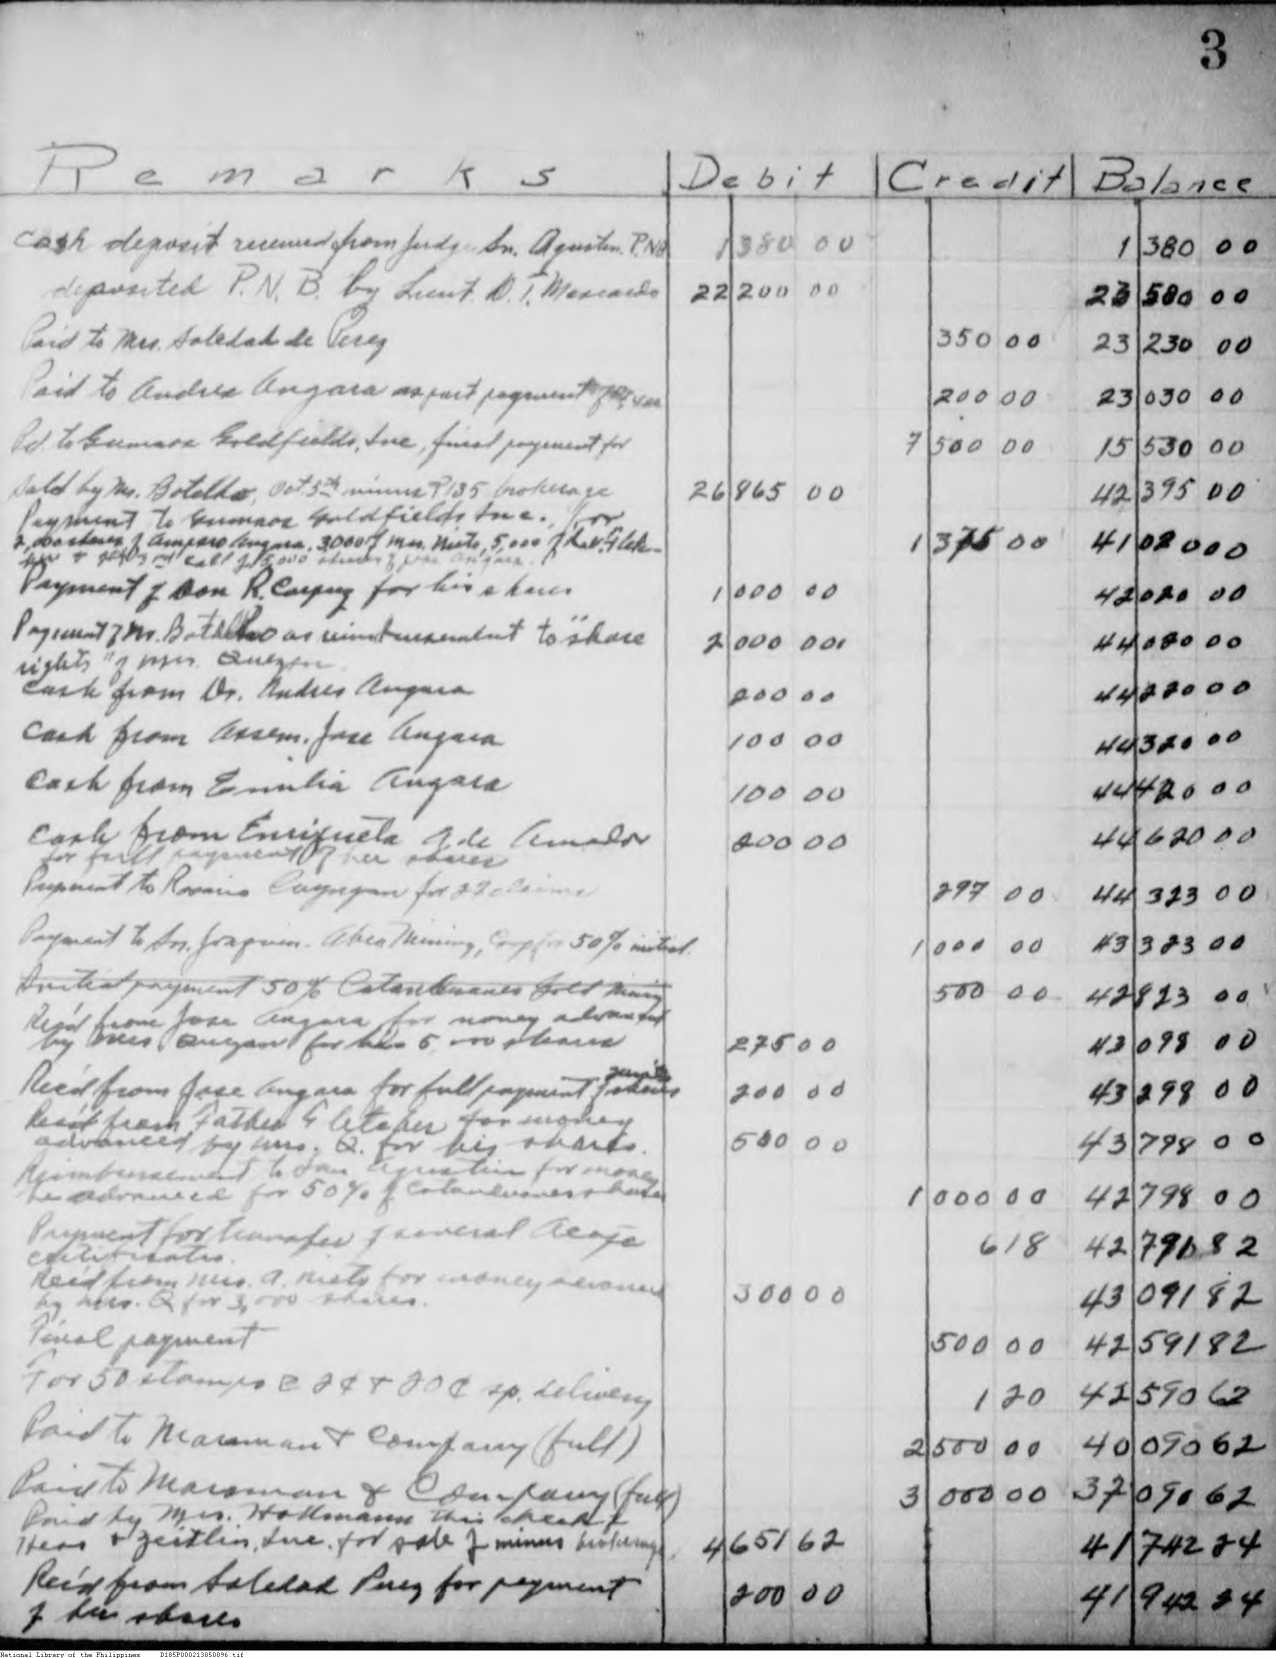 3
Remarks Debit Credit Balance
Cash deposit received from Judge Sn. Agustin. P.NB 1 380 00 1 380 00
deposited P.N.B. by Lieut. D.T. Mascardo 22 200 00 23 580 00
Paid to Mrs. Soledad de Perez 350 00 23 230 00
Paid to Andres Angara as part payment of 200 00 23 030 00
Pd. to Gumaos Goldfields, Inc, final payment for 7 500 00 15 530 00
Sold by Mr. Botelho, Oct 5th minus ₱135 brokerage 26 865 00 42 395 00
Payment to Gumaos Goldfields Inc. for
2,000 shares of Amparo Angara, 3000 of Mrs. Nieto, 5,000 of 1 375 00 41 020 00
call of 5,000 shares of Jose Angara.
Payment of Don R. Corpuz for his shares 1 000 00 42 020 00
Payment of Mr. Botelho as reimbursement to "share 2 000 00 44 020 00
rights" of Mrs. Quezon
Cash from Dr. Andres Angara 200 00 44 220 00
Cash from Assem. Jose Angara 100 00 44 320 00
Cash from Emilia Angara 100 00 44 420 00
Cash from Enriqueta A. de Amador 200 00 44 620 00
for full payment of her shares
Payment to Rosario Cuyugan for 22 claims 297 00 44 323 00
Payment to Sn. Joaquin. Abra Mining, Corp for 50% initial. 1 000 00 43 323 00
Initial payment 50% Catanduanes Gold Mining 500 00 42 823 00
Rec'd from Jose Angara for money advanced
by Mrs. Quezon for his 5,000 shares 275 00 43 098 00
Rec'd from Jose Angara for full payment of shares 200 00 43 298 00
Rec'd from Father Fletcher for money
advanced by Mrs. Q. for his shares. 500 00 43 798 00
Reimbursement to San Agustin for money
he advanced for 50% of Catanduanes shares 1 000 00 42 798 00
Payment for transfer of several Acoje 6 18 42 791 82
certificates.
Rec'd from Mrs. A. Nieto for money advanced 300 00 43 091 82
by Mrs. Q for 3,000 shares.
Final payment 500 00 42 591 82
For 50 stamps @ 2¢ + 20¢ sp. delivery 1 20 42 590 62
Paid to Marsman & Company (full) 2 500 00 40 090 62
Paid to Marsman & Company (full) 3 000 00 37 090 62
Paid by Mrs. Hollmann this check of
Hess & Zeitlin, Inc. for sale of minus brokerage. 4 651 62 41 742 24
Rec'd from Soledad Perez for payment 200 00 41 942 24
of her shares
National Library of the Philippines D185P000213050096.tif